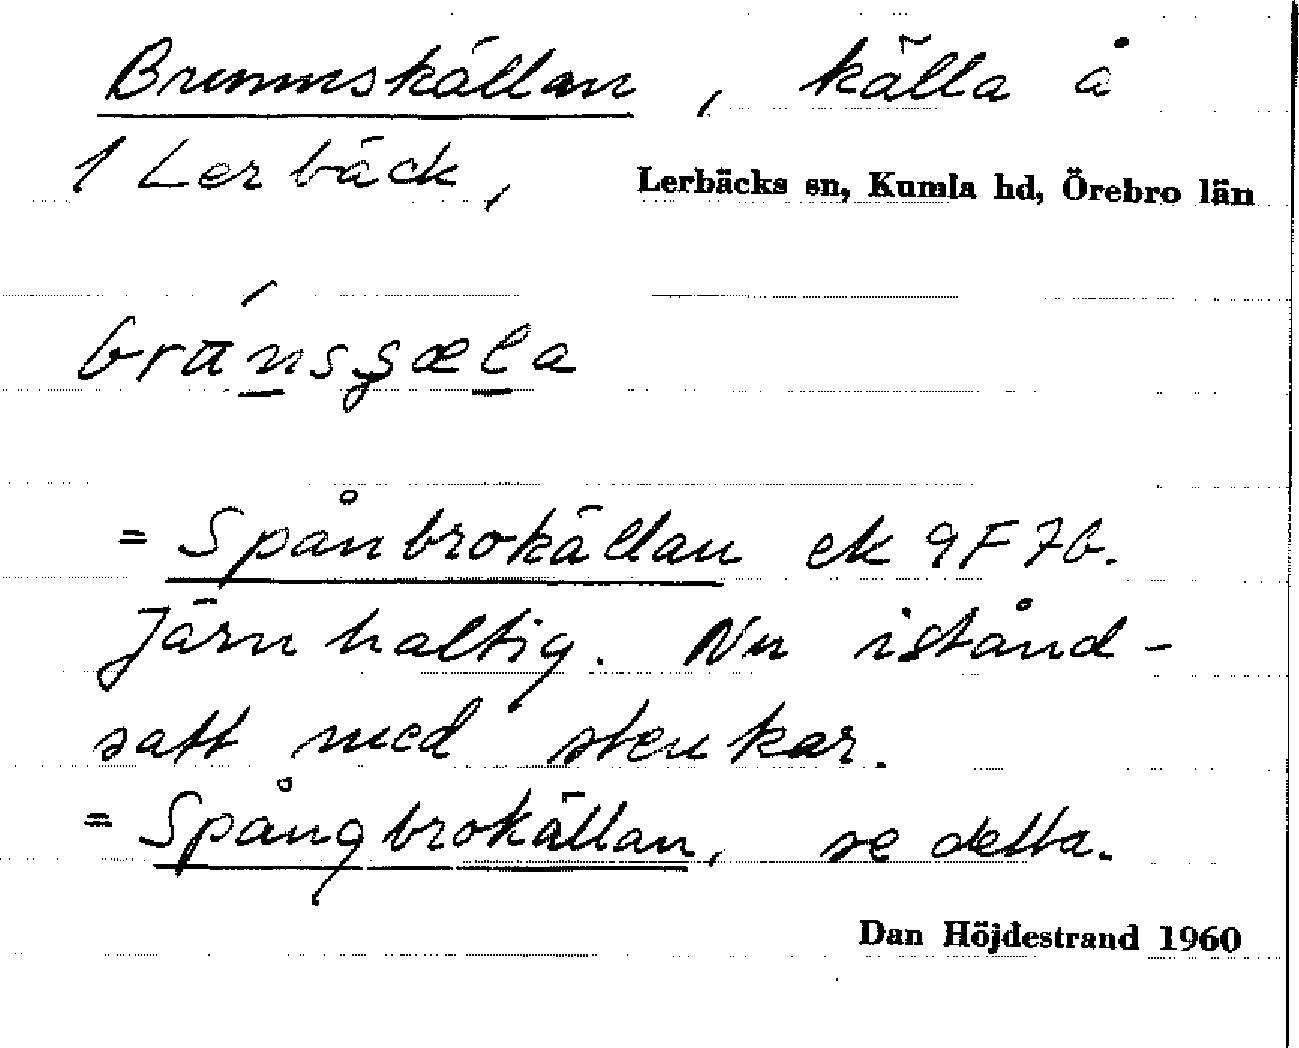 Brunnskällan, källa å
1 Lerbäck, Lerbäcks sn, Kumla hd, Örebro län
= Spånbrokällan ek 9F7b.
Järnhaltig. Nu istånd-
satt med stenkar.
= Spångbrokällan, se detta.
Dan Höjdestrand 1960